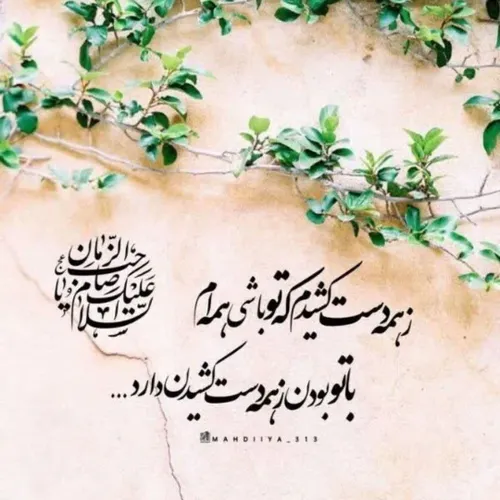 زهمه دست کشیدم که تو باشی همه ام
با تو بودن زهمه دست کشیدن دارد...
السلام علیک یا صاحب الزمان
MAHDIIYA_313